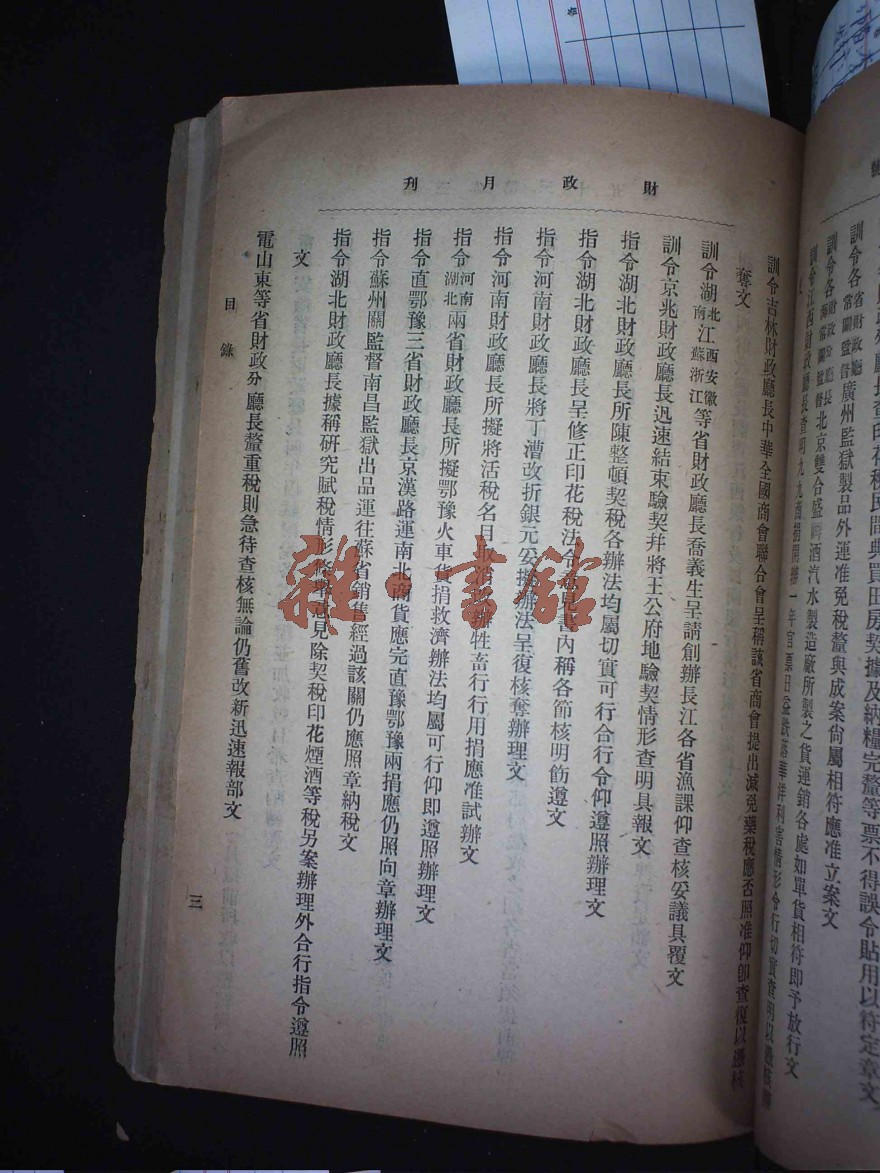 廳長查印花稅民間典買田房契據及納糧完釐等票不得誤令貼用以符定章文
訓令各省財政廳常關監督廣州監獄製品外運准免稅釐與成案尙屬相符應准立案文
訓令各 北京雙合盛啤酒汽水製造廠所製之貨運銷各處如單貨相符即予放行文
訓令江西財政廳長查明九九商捐開辦一年官票日益跌落華洋利害情形令行切實查明以憑核
財政月刊
訓令吉林財政廳長中華全國商會聯合會呈稱該省商會提出減免藥稅應否照准仰卽查復以憑核
奪文
訓令湖北南江西蘇安徽浙江等省財政廳長喬義生呈請創辦長江各省漁課仰查核妥議具覆文
訓令京兆財政廳長迅速結束驗契幷將王公府地驗契情形查明具報文
指令湖北財政廳長所陳整頓契稅各辦法均屬切實可行合行令仰遵照辦理文
指令湖北財政廳長呈修正印花稅法令意見書內稱各節核明飭遵文
指令河南財政廳長將丁漕改折銀元妥擬辦法呈復核奪辦理文
指令河南財政廳長所擬將活稅名目取消改辦牲畜行行用捐應准試辦文
指令河南湖北兩省財政廳長所擬鄂豫火車貨捐救濟辦法均屬可行仰即遵照辦理文
指令直鄂豫三省財政廳長京漢路運南北商貨應完直豫鄂豫兩捐應仍照向章辦理文
指令蘇州關監督南昌監獄出品運往蘇省銷售經過該關仍應照章納稅文
指令湖北財政廳長據稱硏究賦稅情形條舉意見除契稅印花煙酒等稅另案辦理外合行指令遵照
文
電山東等省財政分廳長釐重稅則急待查核無論仍舊改新迅速報部文
目錄
三
雜·書館